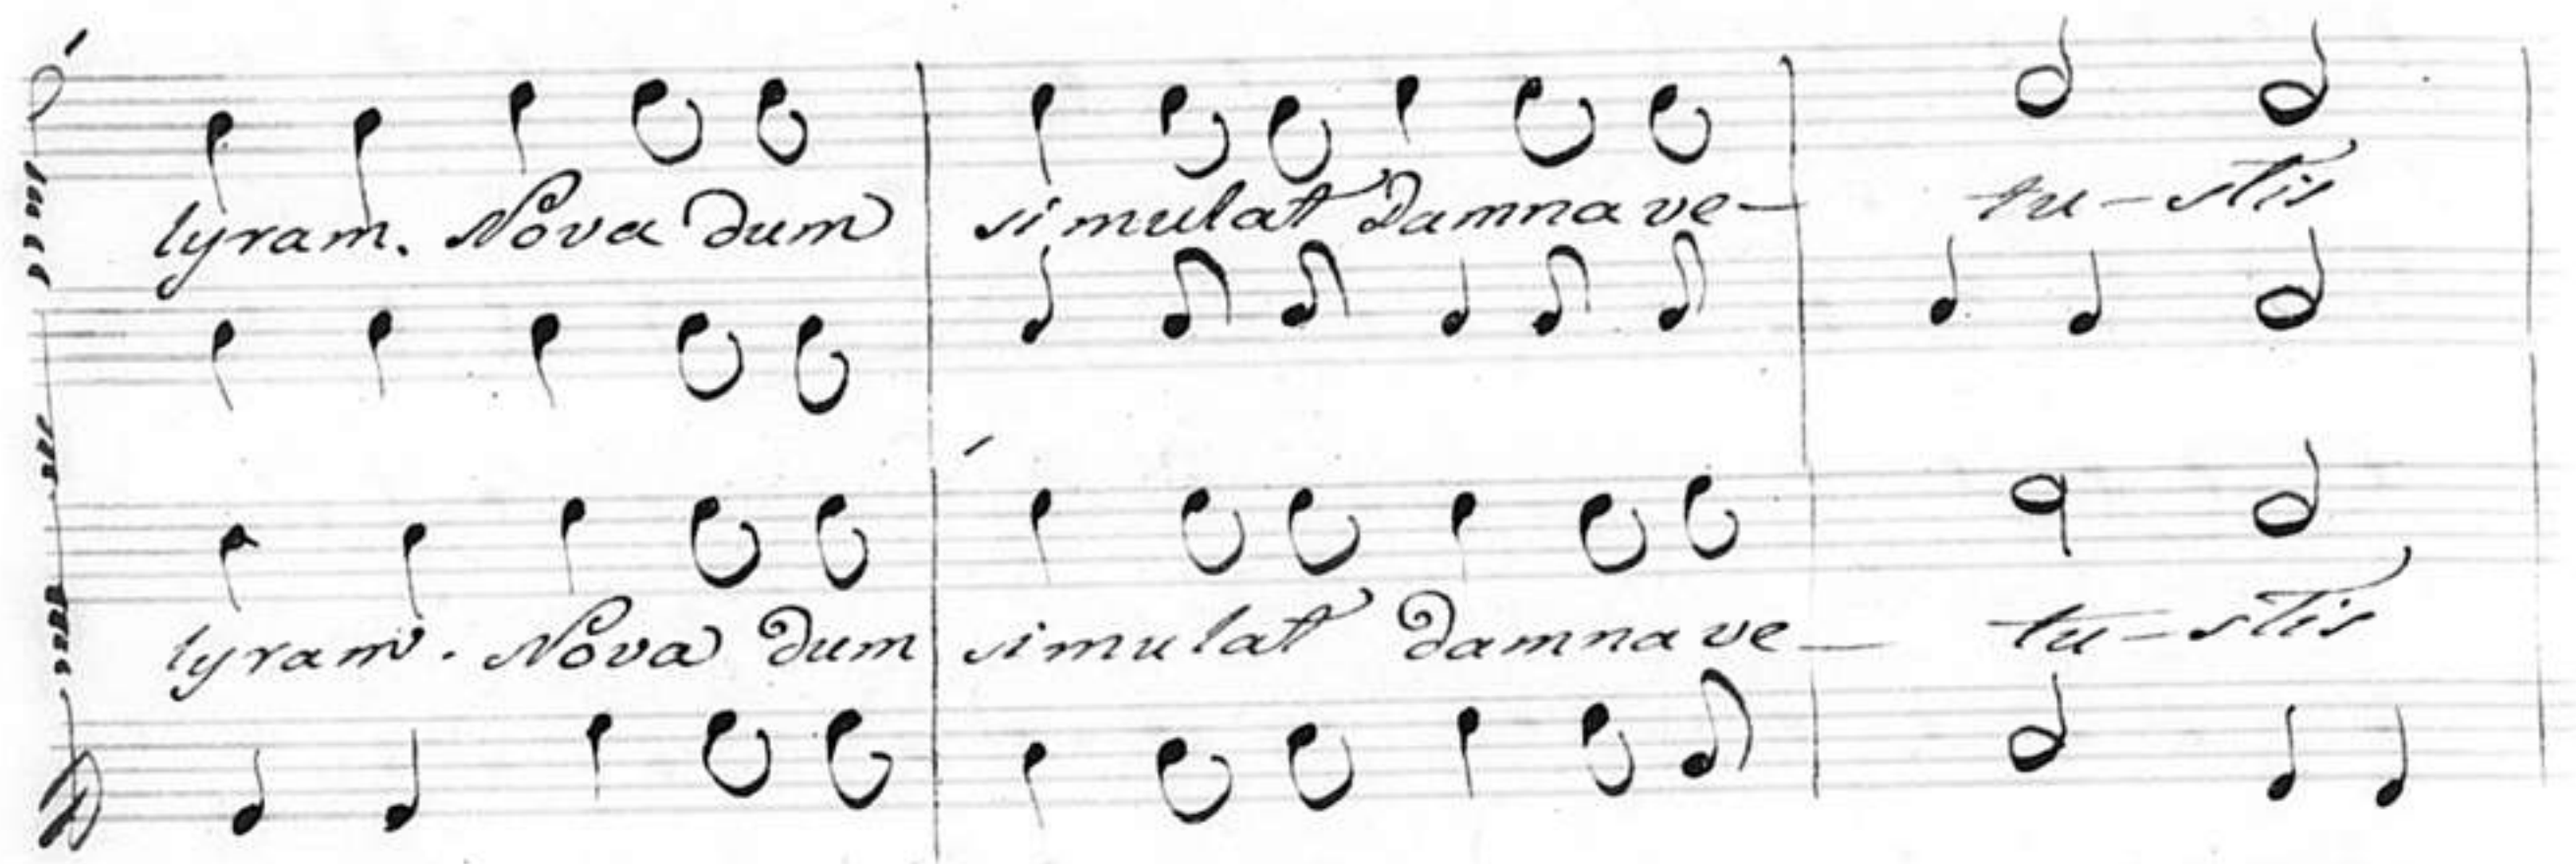 lyram. Nova dum simulat Damna ve- tu-stis
lyram. Nova dum simulat damna ve- tu-stis